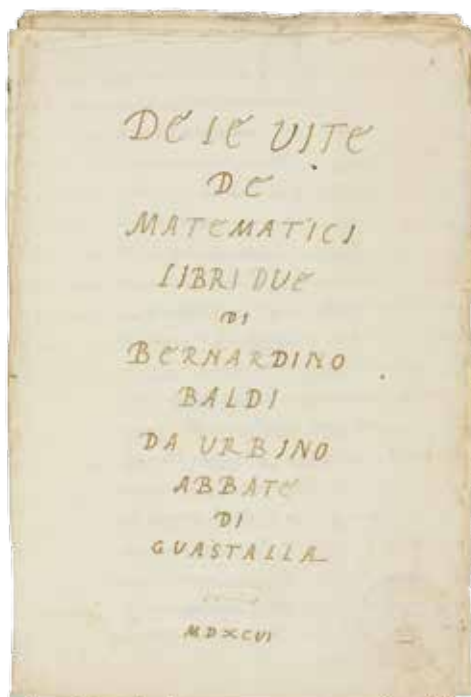 DE LE VITE
DE
MATEMATICI
LIBRI DUE
DI
BERNARDINO
BALDI
DA URBINO
ABBATE
DI
GUASTALLA
MDXCVI